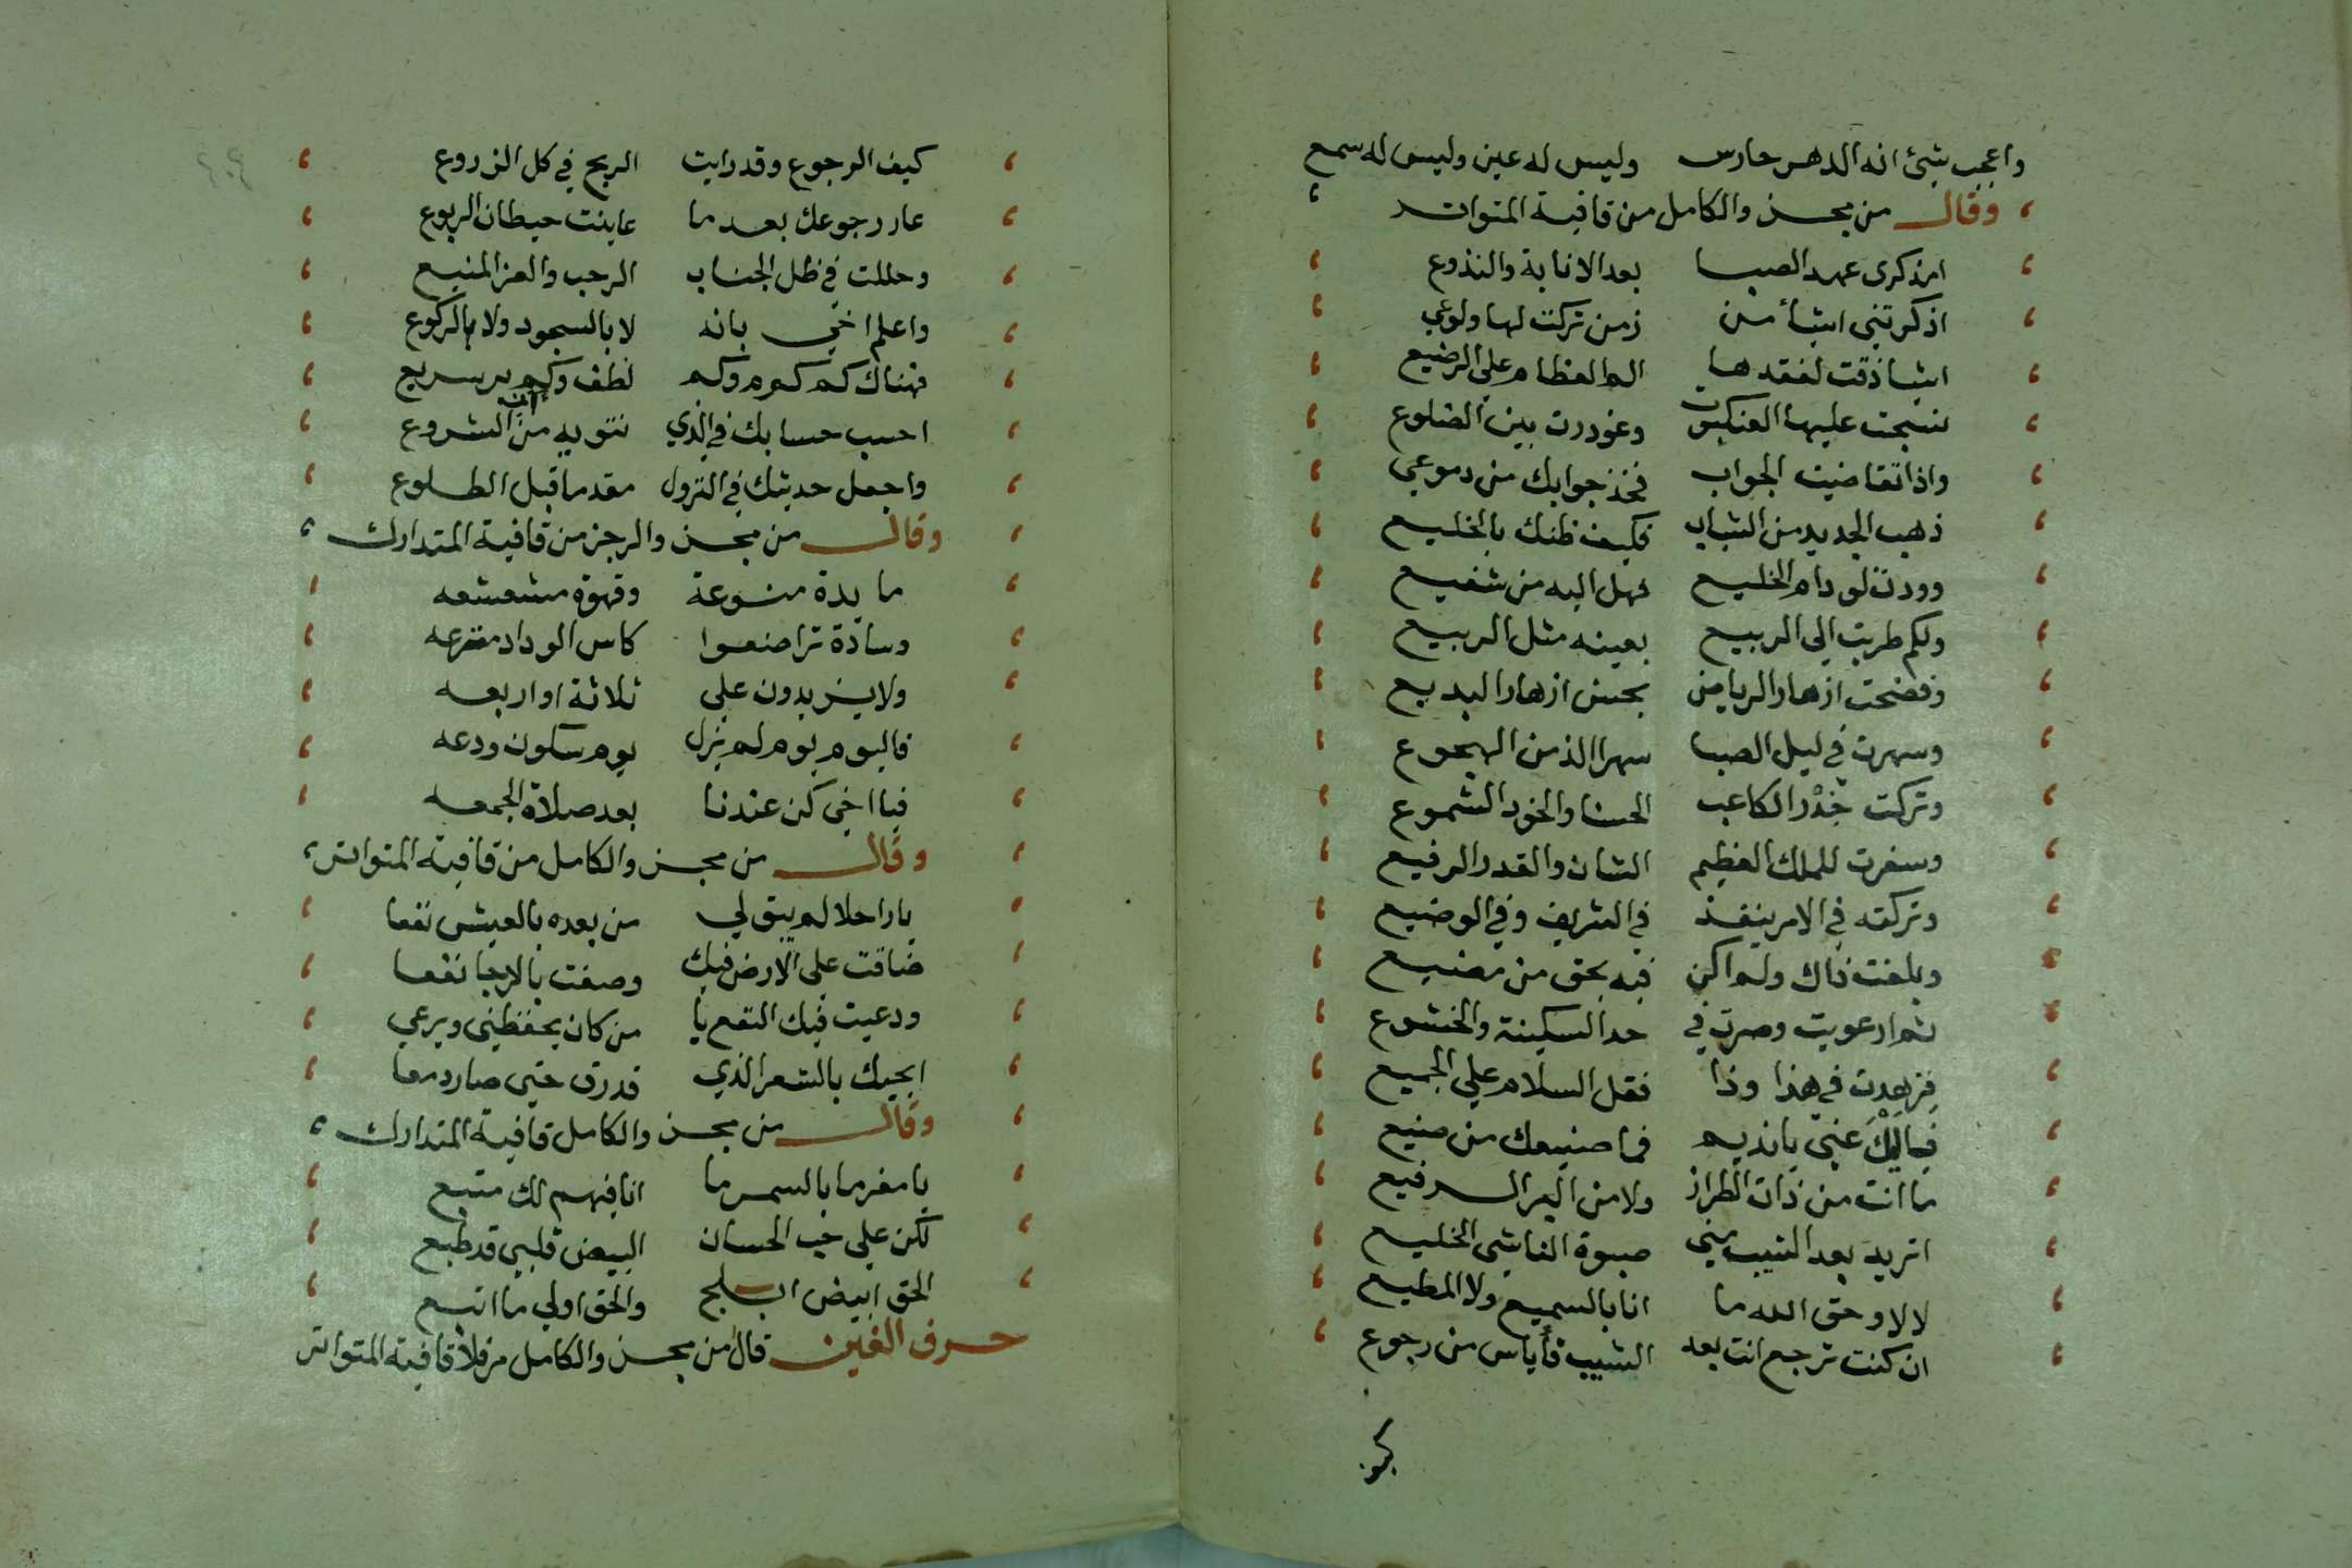 واعجب شئ انه الدهر حارس وليس له عين وليس له سمع
وقال من مجزو الكامل من قافية المتواتر
امذكرى عهد الصبا بعد الانابة والنزوع
اذكرتنى اشيا من زمن تركت لها ولوعي
اشيا ذقت لفقدها الم الفطام على الرضيع
نسجت عليها العنكبوت وغودرت بين الضلوع
واذا تقاضيت الجواب فخذ جوابك من دموعي
ذهب الجديد من الشباب فكيف ظنك بالخليع
وودت لو دام الخليع فهل اليه من شفيع
ولكم طربت الى الربيع بعينه مثل الربيع
وفضحت ازهار الرياض بحسن ازهار البديع
وسهرت في ليل الصبا سهرا الذ من الهجوع
وتركت خدر الكاعب الحسنا والخود الشموع
وسفرت للملك العظيم الشان والقدر الرفيع
وتركته في الامر ينفذ في الشريف وفي الوضيع
وبلغت ذاك ولم اكن فيه بحق من مضيع
ثم ارعويت وصرت في حد السكينة والخشوع
فزهدت في هذا وذا فقل السلام على الجميع
فاليك عني يا نديم فما صنيعك من صنيع
ما انت من ذات الطراز ولا من الرفيع
اتريد بعد الشيب مني صبوة الناشى الخليع
لا لا وحق الله ما انا بالسميع ولا المطيع
ان كنت ترجع انت بعد الشيب فأياس من رجوع
كيف
كيف الرجوع وقد رايت الريح في كل الزروع
عار رجوعك بعد ما عاينت حيطان الربوع
وحللت في ظل الجناب الرحب والعز المنيع
واعلم اخي بانه لا بالسجود ولا بالركوع
فهناك كم كرم وكم لطف وكم بر سريع
احسب حسابك في الذي تنويه من الشروع
واجعل حديثك في النزول مقدما قبل الطلوع
وقال من مجزو الرجز من قافية المتدارك
مايدة منوعة وقهوة مشعشعه
وسادة تراضعوا كاس الوداد مترعه
ولا يزيدون على ثلاثة او اربعه
فاليوم يوم لم يزل يوم سكون ودعه
فيا اخي كن عندنا بعد صلاة الجمعه
وقال من مجزو الكامل من قافية المتواتر
يا راحلا لم يبق لي من بعده بالعيش نفعا
ضاقت على الارض فيك وضقت بالارجا نفعا
ودعيت فيك النفع يا من كان يحفظني ويرعي
ابكيك بالشعر الذي قدرق حتى صار دمعا
وقال من مجزو الكامل قافية المتدارك
يا مغرما بالسمر ما انا فيهم لك متبع
لكن على حب الحسان البيض قلبي قد طبع
الحق ابيض ابلج والحق اولى ما اتبع
حرف الغين قال من مجزو الكامل مرفلا قافية المتواتر